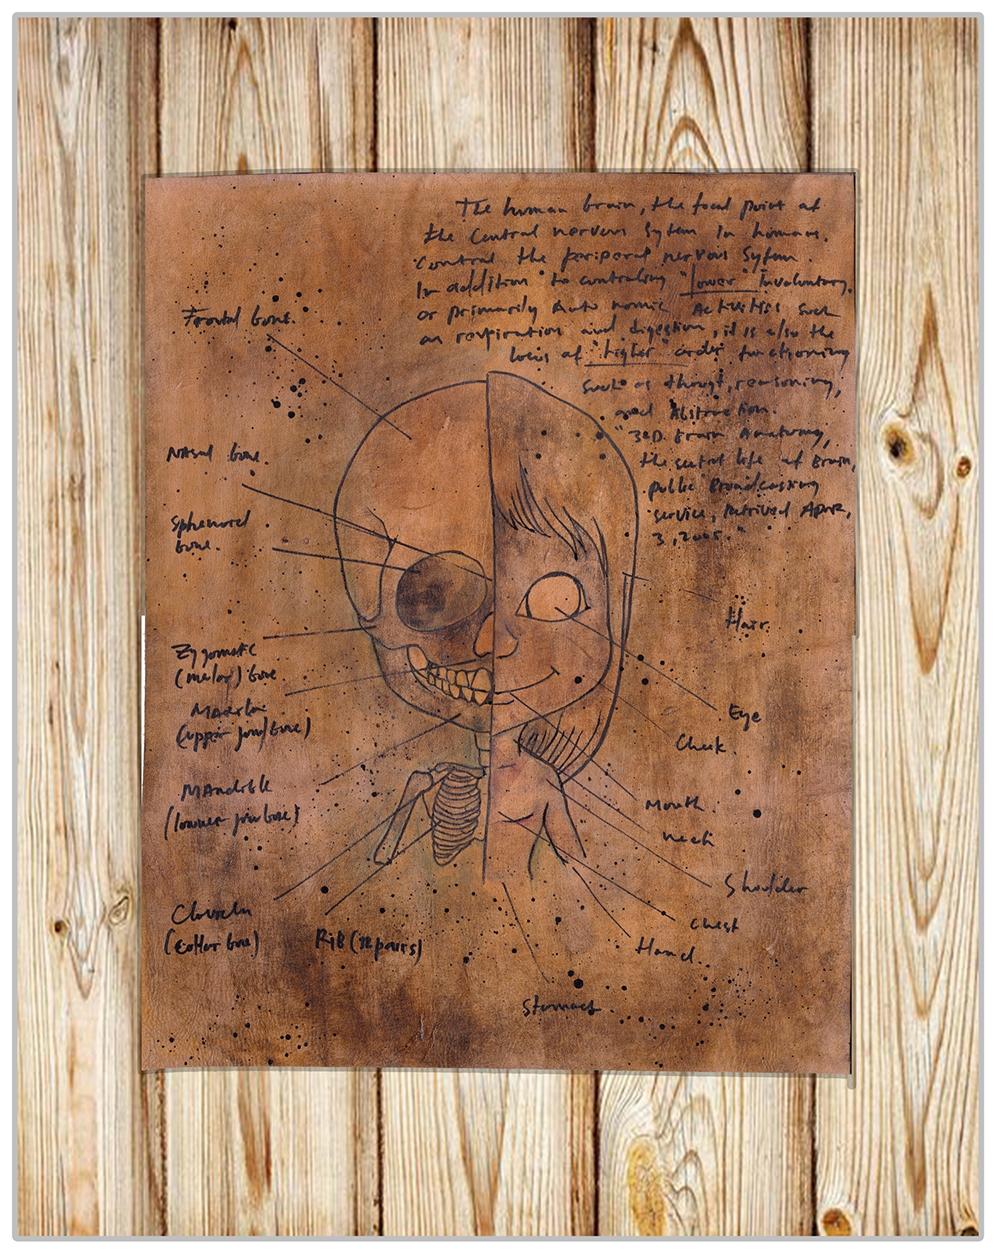 The human brain, the focal point of
the Central nervous System In humans.
Control the periperal nervous System.
In addition to controling "lower" Involuntary.
or primarily Auto nomic Activities such
as respiration and digestion, it is also the
locus of "higher" order functioning
such as thougt, reasoning,
and Abstraction.
"3D. Brain Anatomy,
the secret life of Brain,
public Broadcasting
service, Retrived April,
3, 2005."
Frontal bone.
Nasal bone.
Sphenoid
bone.
Zygomatic
(malar) bone
(upper jaw bone)
Mandible
(lower jaw bone)
(Collar bone)
RiB (12 pairs)
Hair.
Eye
Cheek.
Mouth
Neck
Shoulder
Chest
Hand.
Stomach